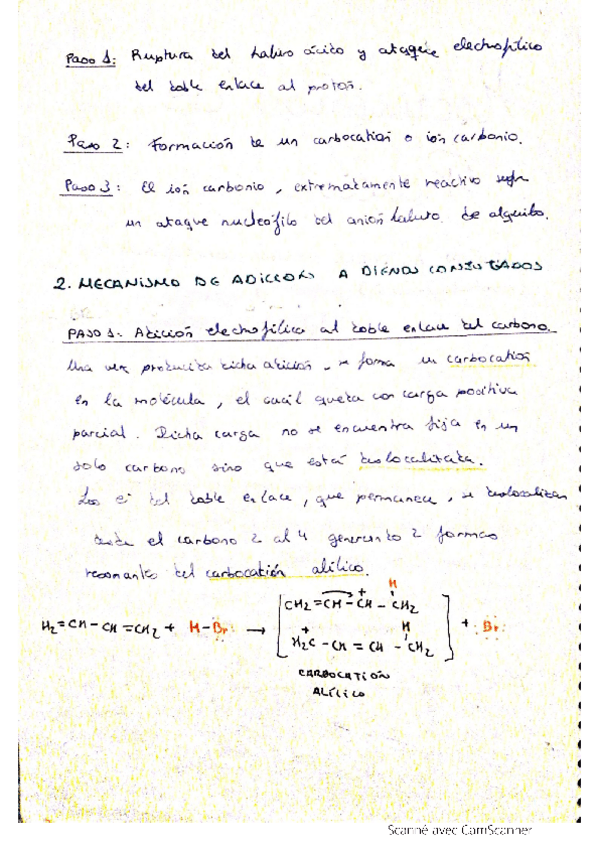 Paso 1: Ruptura del haluro ácido y ataque electrofílico
del doble enlace al protón.
Paso 2: Formación de un carbocation o ión carbonio.
Paso 3: El ión carbonio, extremadamente reactivo sufre
un ataque nucleófilo del anión haluro de alquilo.
2. MECANISMO DE ADICCION A DIENOS CONJUGADOS
PASO 1: Adición electrofílica al doble enlace del carbono.
Una vez producida dicha adición, se forma un carbocation
en la molécula, el cuál queda con carga positiva
parcial. Dicha carga no se encuentra fija en un
solo carbono sino que está deslocalizada.
Los e⁻ del doble enlace, que permanece, se deslocalizan
desde el carbono 2 al 4 generando 2 formas
resonantes del carbocatión alílico.
H
CH₂=CH-CH-CH₂
+
H₂=CH-CH=CH₂ + H-Br: → + :Br:
H
+
H₂C-CH=CH-CH₂
CARBOCATIÓN
ALÍLICO
Scanné avec CamScanner